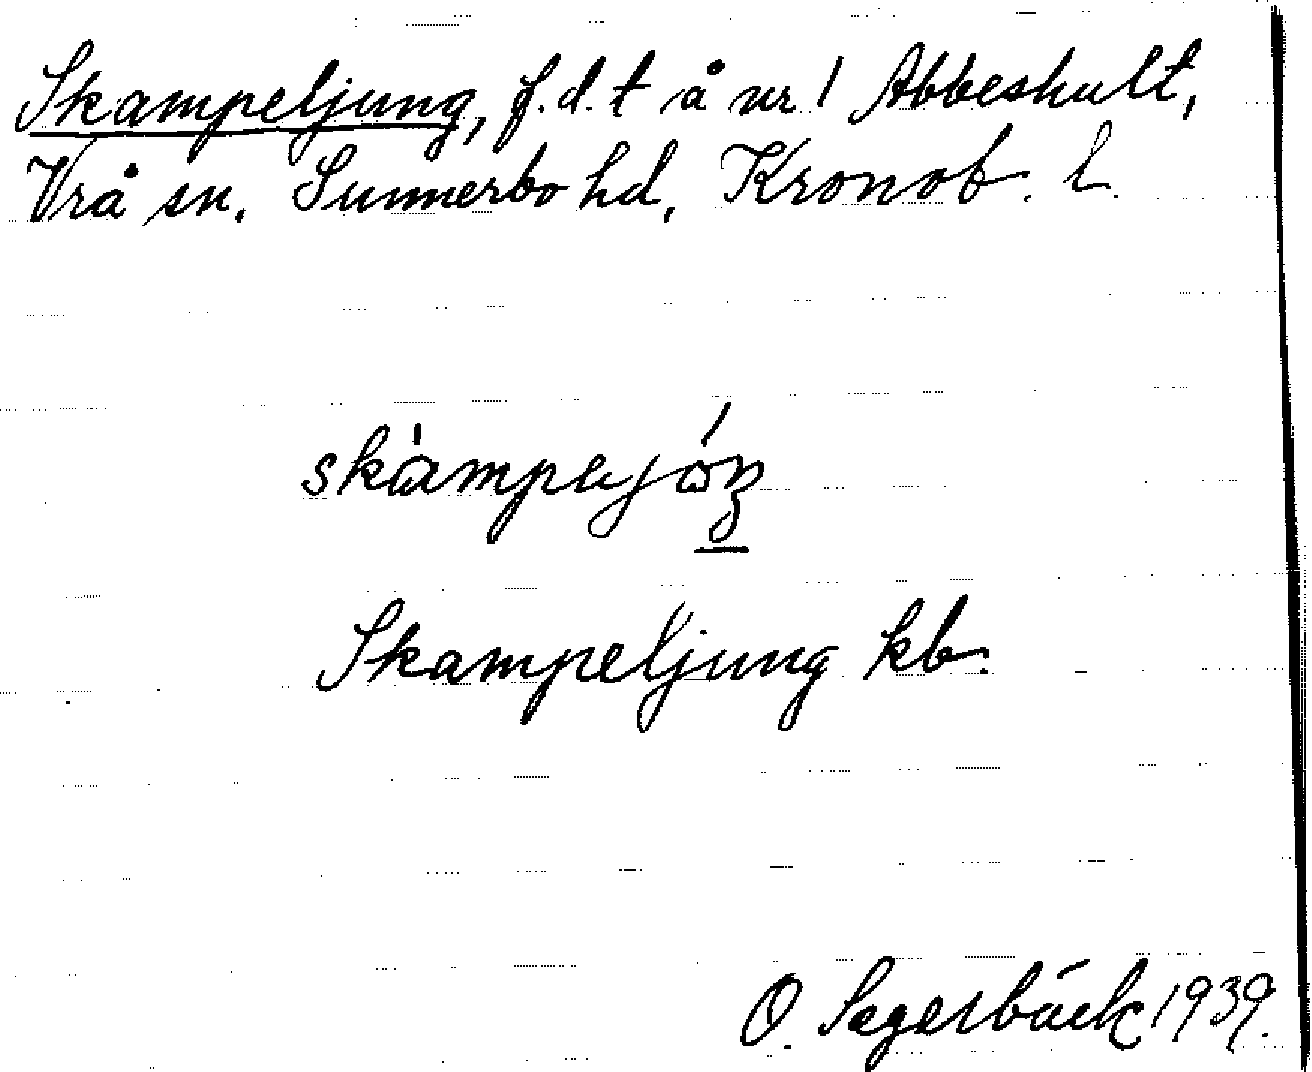 Skampeljung, f.d.t å nr 1 Abbeshult,
Vrå sn. Sunnerbo hd, Kronob. l.
Skampeljung kb.
O. Segerbäck 1939.